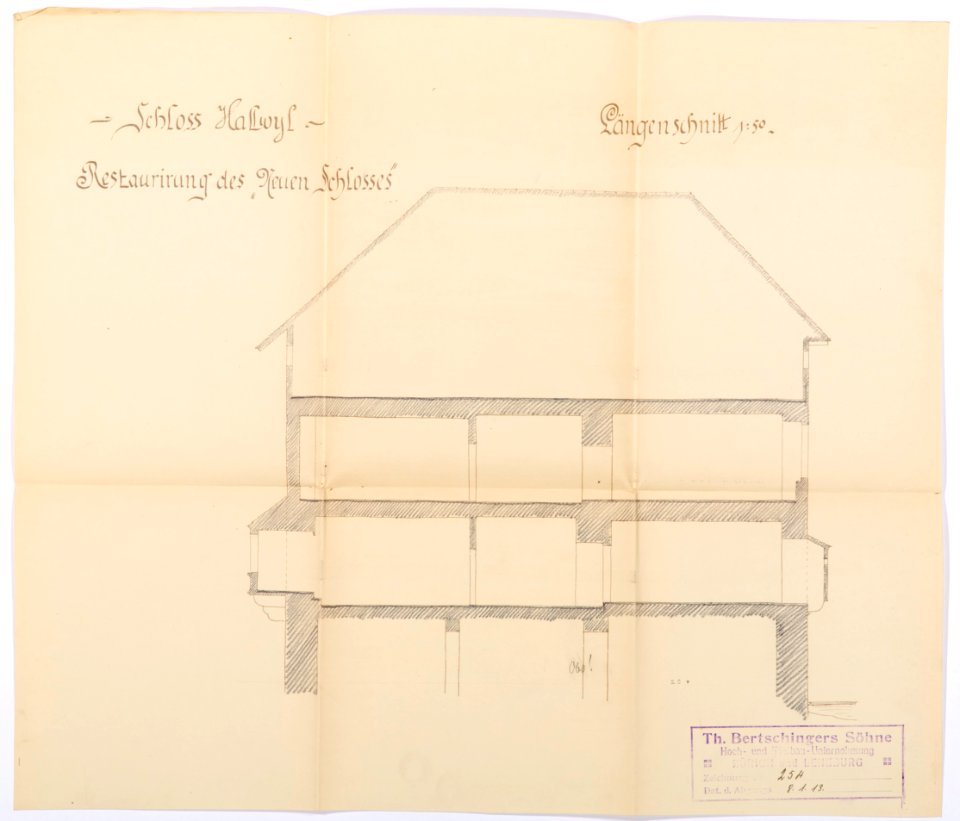 – Schloss Hallwyl –
Längenschnitt 1:50.
Restaurirung des „Neuen Schlosses“
Th. Bertschingers Söhne
Hoch- und Tiefbau-Unternehmung
ZÜRICH und LENZBURG
Zeichnung 254
Dat. d. 8. 1. 13.